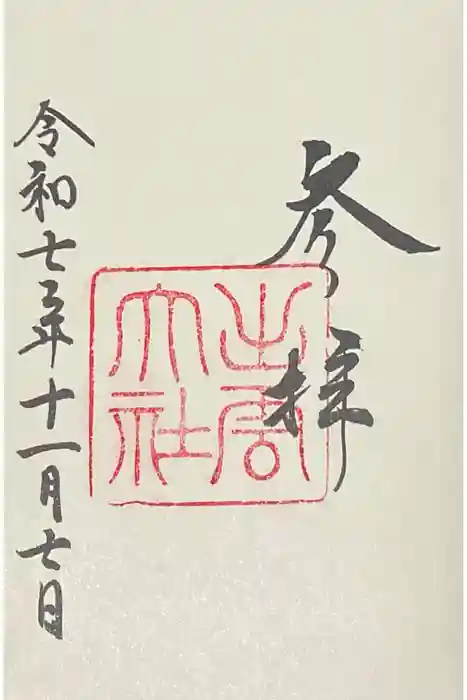 参拝
出雲
大社
令和七年十一月七日